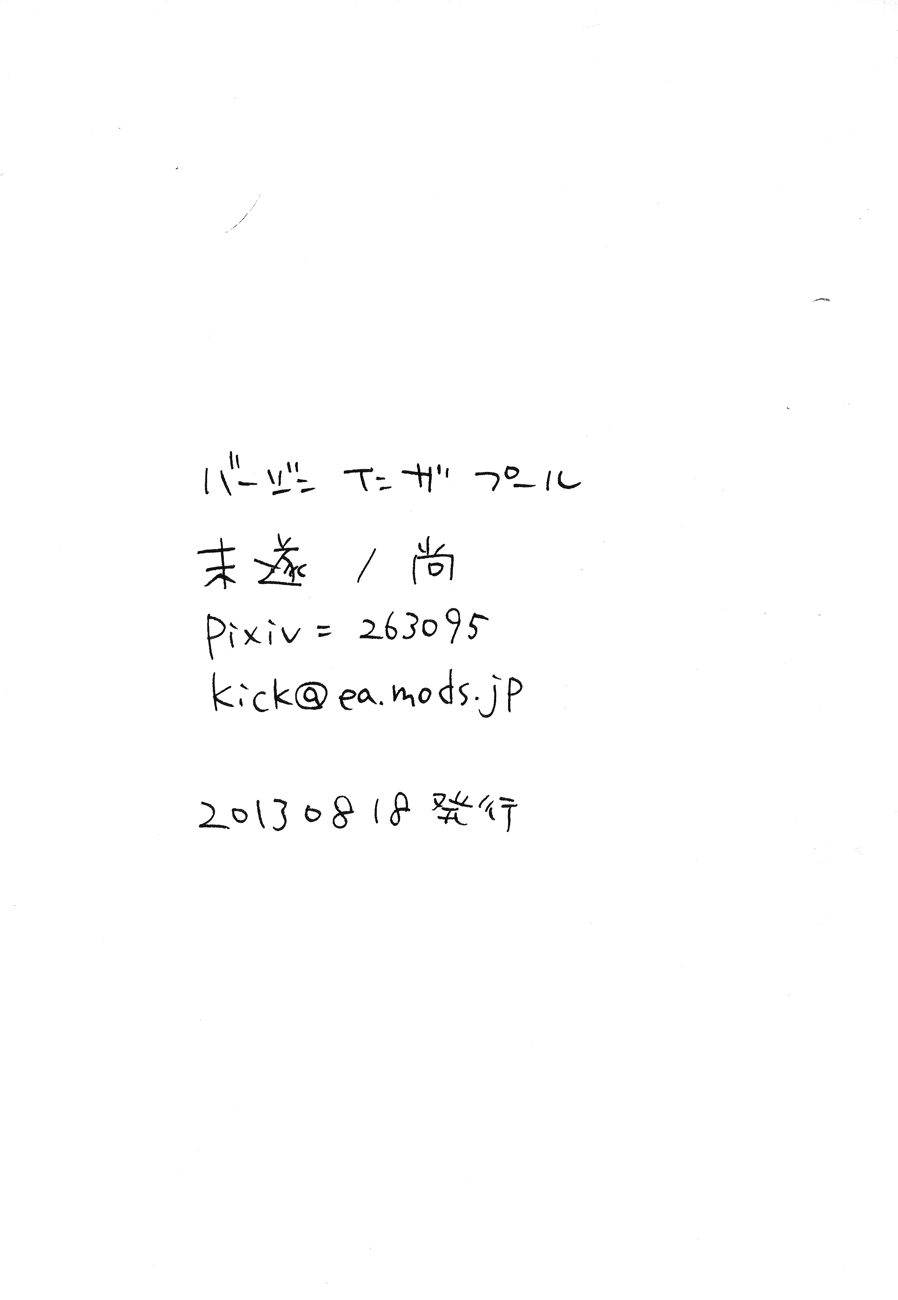 バージニ イニザ プール
未遂 / 尚
pixiv = 263095
kick@ea.mods.jp
20130818発行